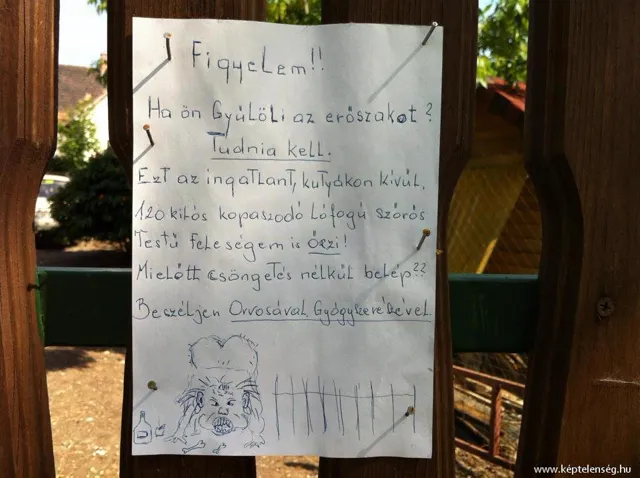 Figyelem!!
Ha ön Gyűlöli az erőszakot?
Tudnia kell.
Ezt az ingatlant, kutyákon kívül,
120 kilós kopaszodó Lófogú szőrös
Testű feleségem is őrzi!
Mielőtt csöngetés nélkül belép??
Beszéljen Orvosával Gyógyszerészével.
www.képtelenség.hu